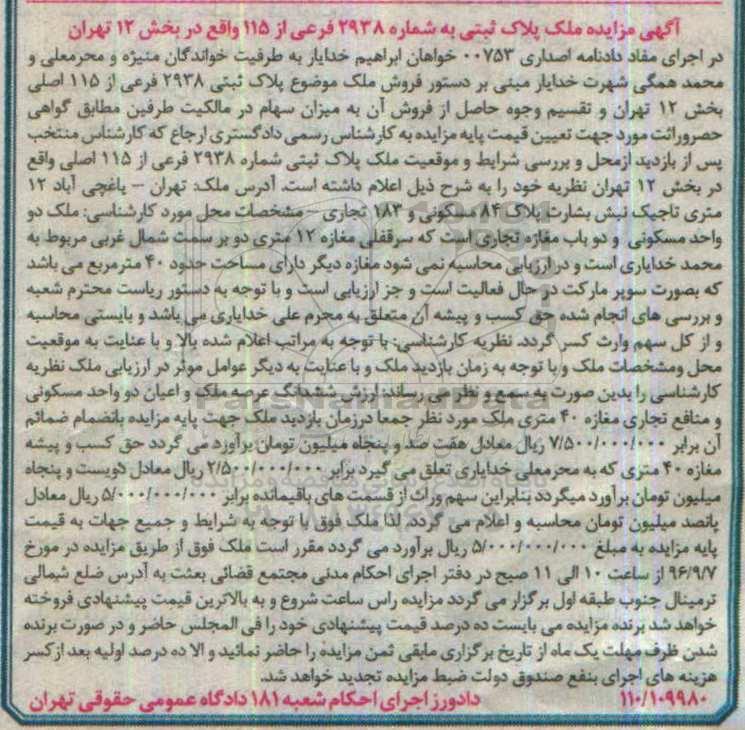 آگهی مزایده ملک پلاک ثبتی به شماره ۲۹۳۸ فرعی از ۱۱۵ واقع در بخش ۱۲ تهران
در اجرای مفاد دادنامه اصداری ۰۰۷۵۳ خواهان ابراهیم خدایار به طرفیت خواندگان منیژه و محرمعلی و
محمد همگی شهرت خدایار مبنی بر دستور فروش ملک موضوع پلاک ثبتی ۲۹۳۸ فرعی از ۱۱۵ اصلی
بخش ۱۲ تهران و تقسیم وجوه حاصل از فروش آن به میزان سهام در مالکیت طرفین مطابق گواهی
حصروراثت مورد جهت تعیین قیمت پایه مزایده به کارشناس رسمی دادگستری ارجاع که کارشناس منتخب
پس از بازدید ازمحل و بررسی شرایط و موقعیت ملک پلاک ثبتی شماره ۲۹۳۸ فرعی از ۱۱۵ اصلی واقع
در بخش ۱۲ تهران نظریه خود را به شرح ذیل اعلام داشته است. آدرس ملک: تهران – یاغچی آباد ۱۲
متری تاجیک نبش بشارت پلاک ۸۴ مسکونی و ۱۸۳ تجاری – مشخصات محل مورد کارشناسی: ملک دو
واحد مسکونی و دو باب مغازه تجاری است که سرقفلی مغازه ۱۲ متری دو بر سمت شمال غربی مربوط به
محمد خدایاری است و در ارزیابی محاسبه نمی شود مغازه دیگر دارای مساحت حدود ۴۰ مترمربع می باشد
که بصورت سوپر مارکت در حال فعالیت است و جز ارزیابی است و با توجه به دستور ریاست محترم شعبه
و بررسی های انجام شده حق کسب و پیشه آن متعلق به محرم علی خدایاری می باشد و بایستی محاسبه
و از کل سهم وارث کسر گردد. نظریه کارشناسی: با توجه به مراتب اعلام شده بالا و با عنایت به موقعیت
محل ومشخصات ملک و با توجه به زمان بازدید ملک و با عنایت به دیگر عوامل موثر در ارزیابی ملک نظریه
کارشناسی را بدین صورت به سمع و نظر می رساند: ارزش ششدانگ عرصه ملک و اعیان دو واحد مسکونی
و منافع تجاری مغازه ۴۰ متری ملک مورد نظر جمعا درزمان بازدید ملک جهت پایه مزایده بانضمام ضمائم
آن برابر ۷/۵۰۰/۰۰۰/۰۰۰ ریال معادل هفت صد و پنجاه میلیون تومان برآورد می گردد حق کسب و پیشه
مغازه ۴۰ متری که به محرمعلی خدایاری تعلق می گیرد برابر ۲/۵۰۰/۰۰۰/۰۰۰ ریال معادل دویست و پنجاه
میلیون تومان برآورد میگردد بنابراین سهم وراث از قسمت های باقیمانده برابر ۵/۰۰۰/۰۰۰/۰۰۰ ریال معادل
پانصد میلیون تومان محاسبه و اعلام می گردد. لذا ملک فوق با توجه به شرایط و جمیع جهات به قیمت
پایه مزایده به مبلغ ۵/۰۰۰/۰۰۰/۰۰۰ ریال برآورد می گردد مقرر است ملک فوق از طریق مزایده در مورخ
۹۶/۹/۷ از ساعت ۱۰ الی ۱۱ صبح در دفتر اجرای احکام مدنی مجتمع قضائی بعثت به آدرس ضلع شمالی
ترمینال جنوب طبقه اول برگزار می گردد مزایده راس ساعت شروع و به بالاترین قیمت پیشنهادی فروخته
خواهد شد برنده مزایده می بایست ده درصد قیمت پیشنهادی خود را فی المجلس حاضر و در صورت برنده
شدن ظرف مهلت یک ماه از تاریخ برگزاری مابقی ثمن مزایده را حاضر نمائید و الا ده درصد اولیه بعد ازکسر
هزینه های اجرای بنفع صندوق دولت ضبط مزایده تجدید خواهد شد.
۱۱۰/۱۰۹۹۸۰ دادورز اجرای احکام شعبه ۱۸۱ دادگاه عمومی حقوقی تهران
ParsNamadData